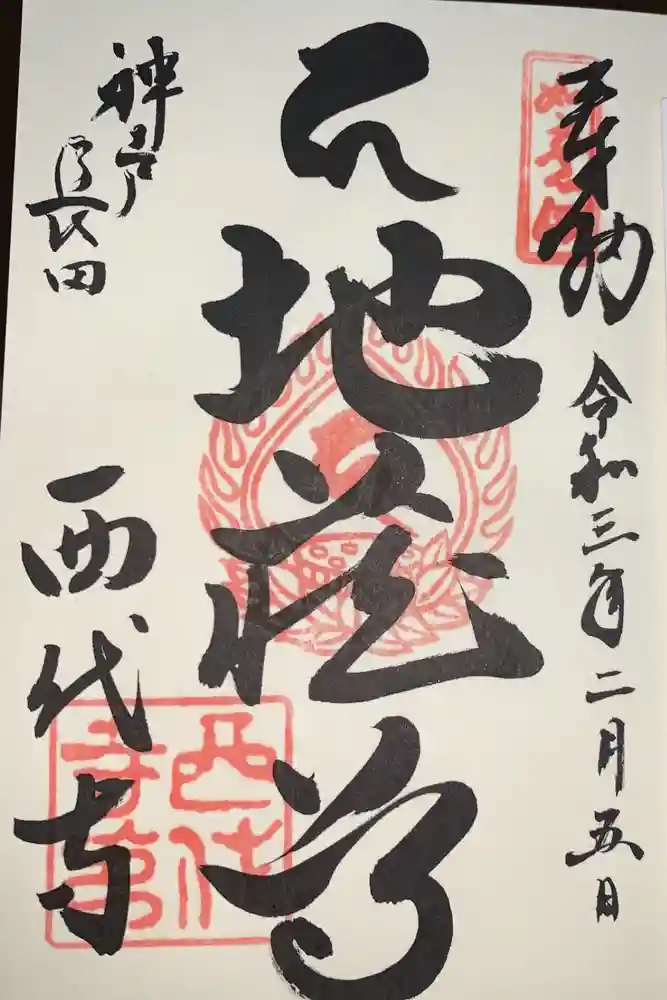 奉納
令和三年二月五日
地蔵尊
神戸
長田
西代寺